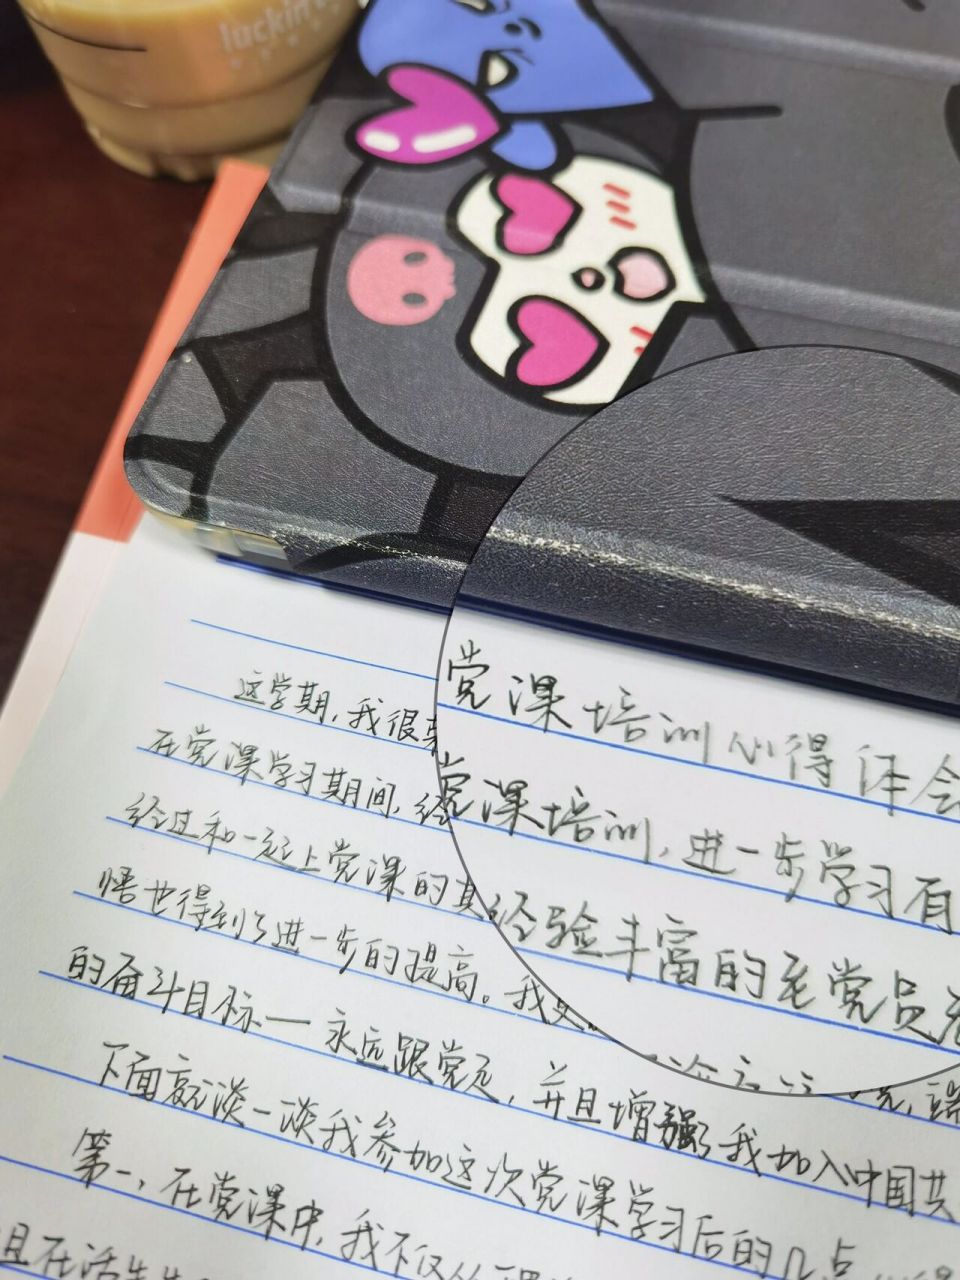 luckin
党课培训心得体会
这学期,我很 党课培训,进一步学习有
在党课学习期间,经 经验丰富的老党员
经过和一起上党课的其
悟也得到了进一步的提高。我
的奋斗目标一永远跟党走,并且增强了我加入中国共
下面就谈一谈我参加这次党课学习后的几点
第一,在党课中,我不仅从理
且在活生生